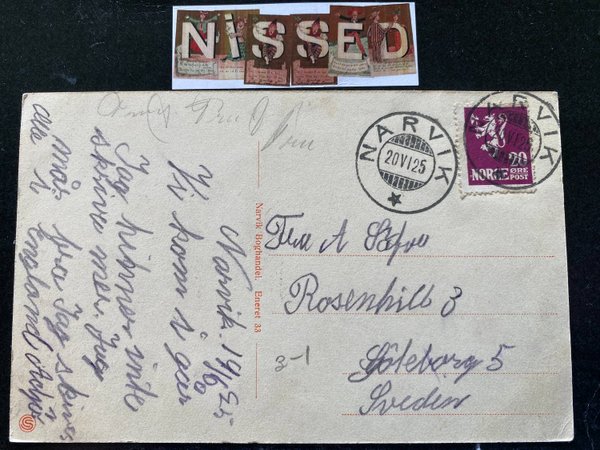 NiSSED
NARVIK
20 VI 25
NARVIK
VI 25
20
NORGE ØRE
POST
Narvik. 19/6 25
Vi kom i går
Jag hinner inte
skriva mer. Jag
mår bra Jag skriver
i England
Narvik Boghandel. Eneret 33
Fru A
Rosenhill 3
Göteborg 5
Sveden
3-1